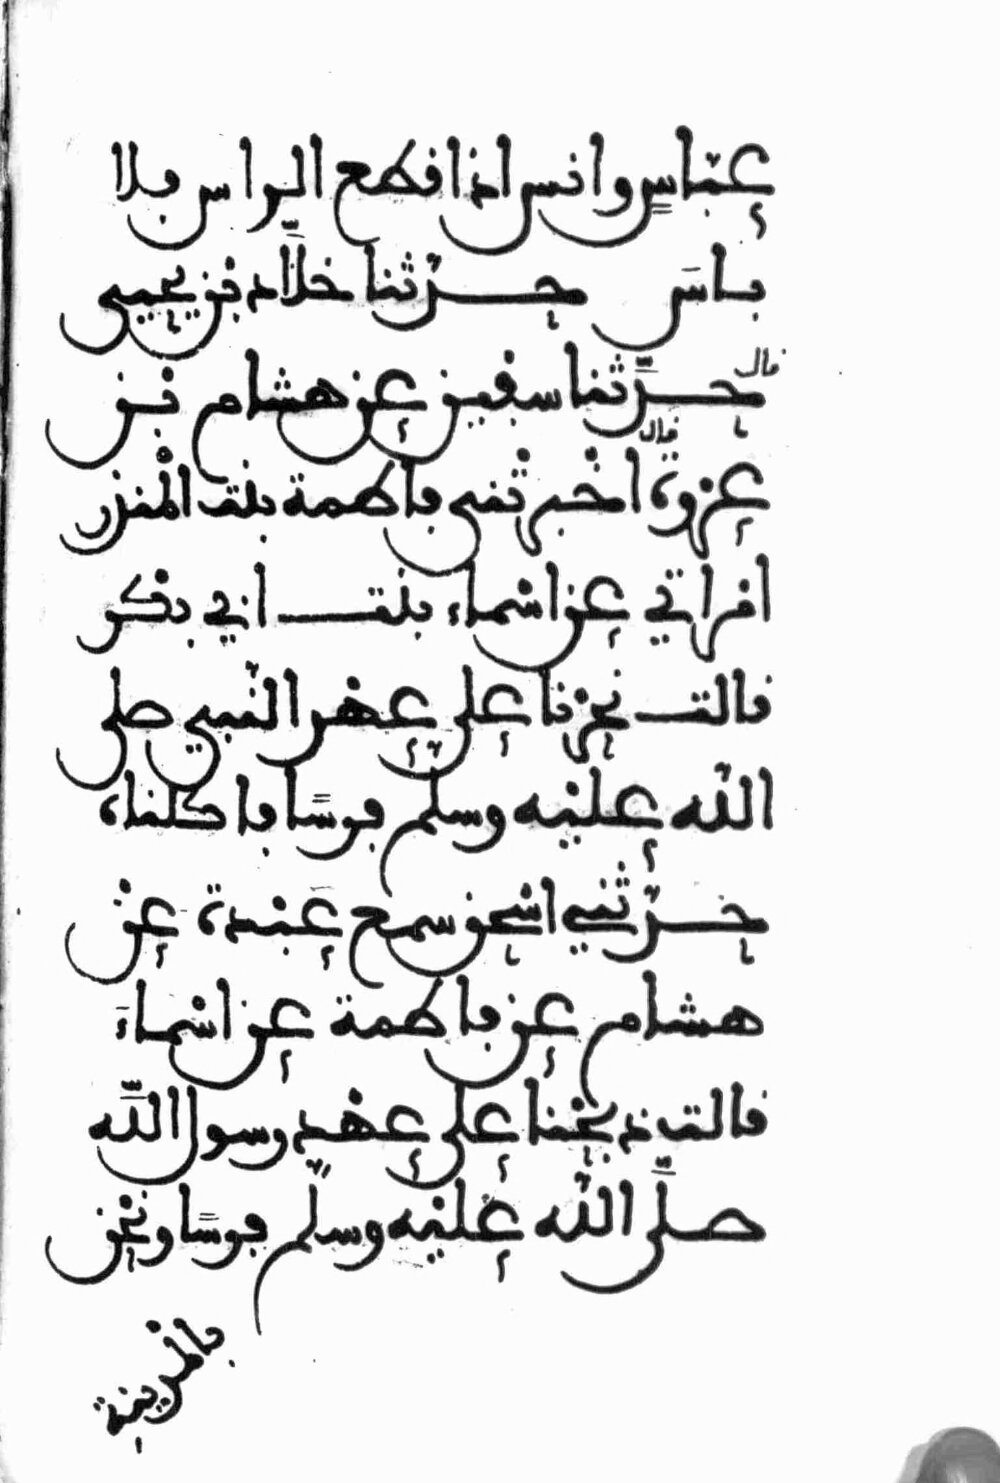 عبّاس وانس اذا قطع الراس فلا
باس حدّثنا خلّاد بن يحيى
قال حدّثنا سفين عن هشام بن
عروة قال اخبرتني فاطمة بنت المنذر
امراتي عن اسماء بنت ابي بكر
قالت نحرنا على عهد النّبي صلى
الله عليه وسلّم فرسًا فاكلناه
حدّثني اسحق سمع عبدة عن
هشام عن فاطمة عن اسماء
قالت ذبحنا على عهد رسول اللّه
صلّى اللّه عليه وسلّم فرسًا ونحن
بالمدينة